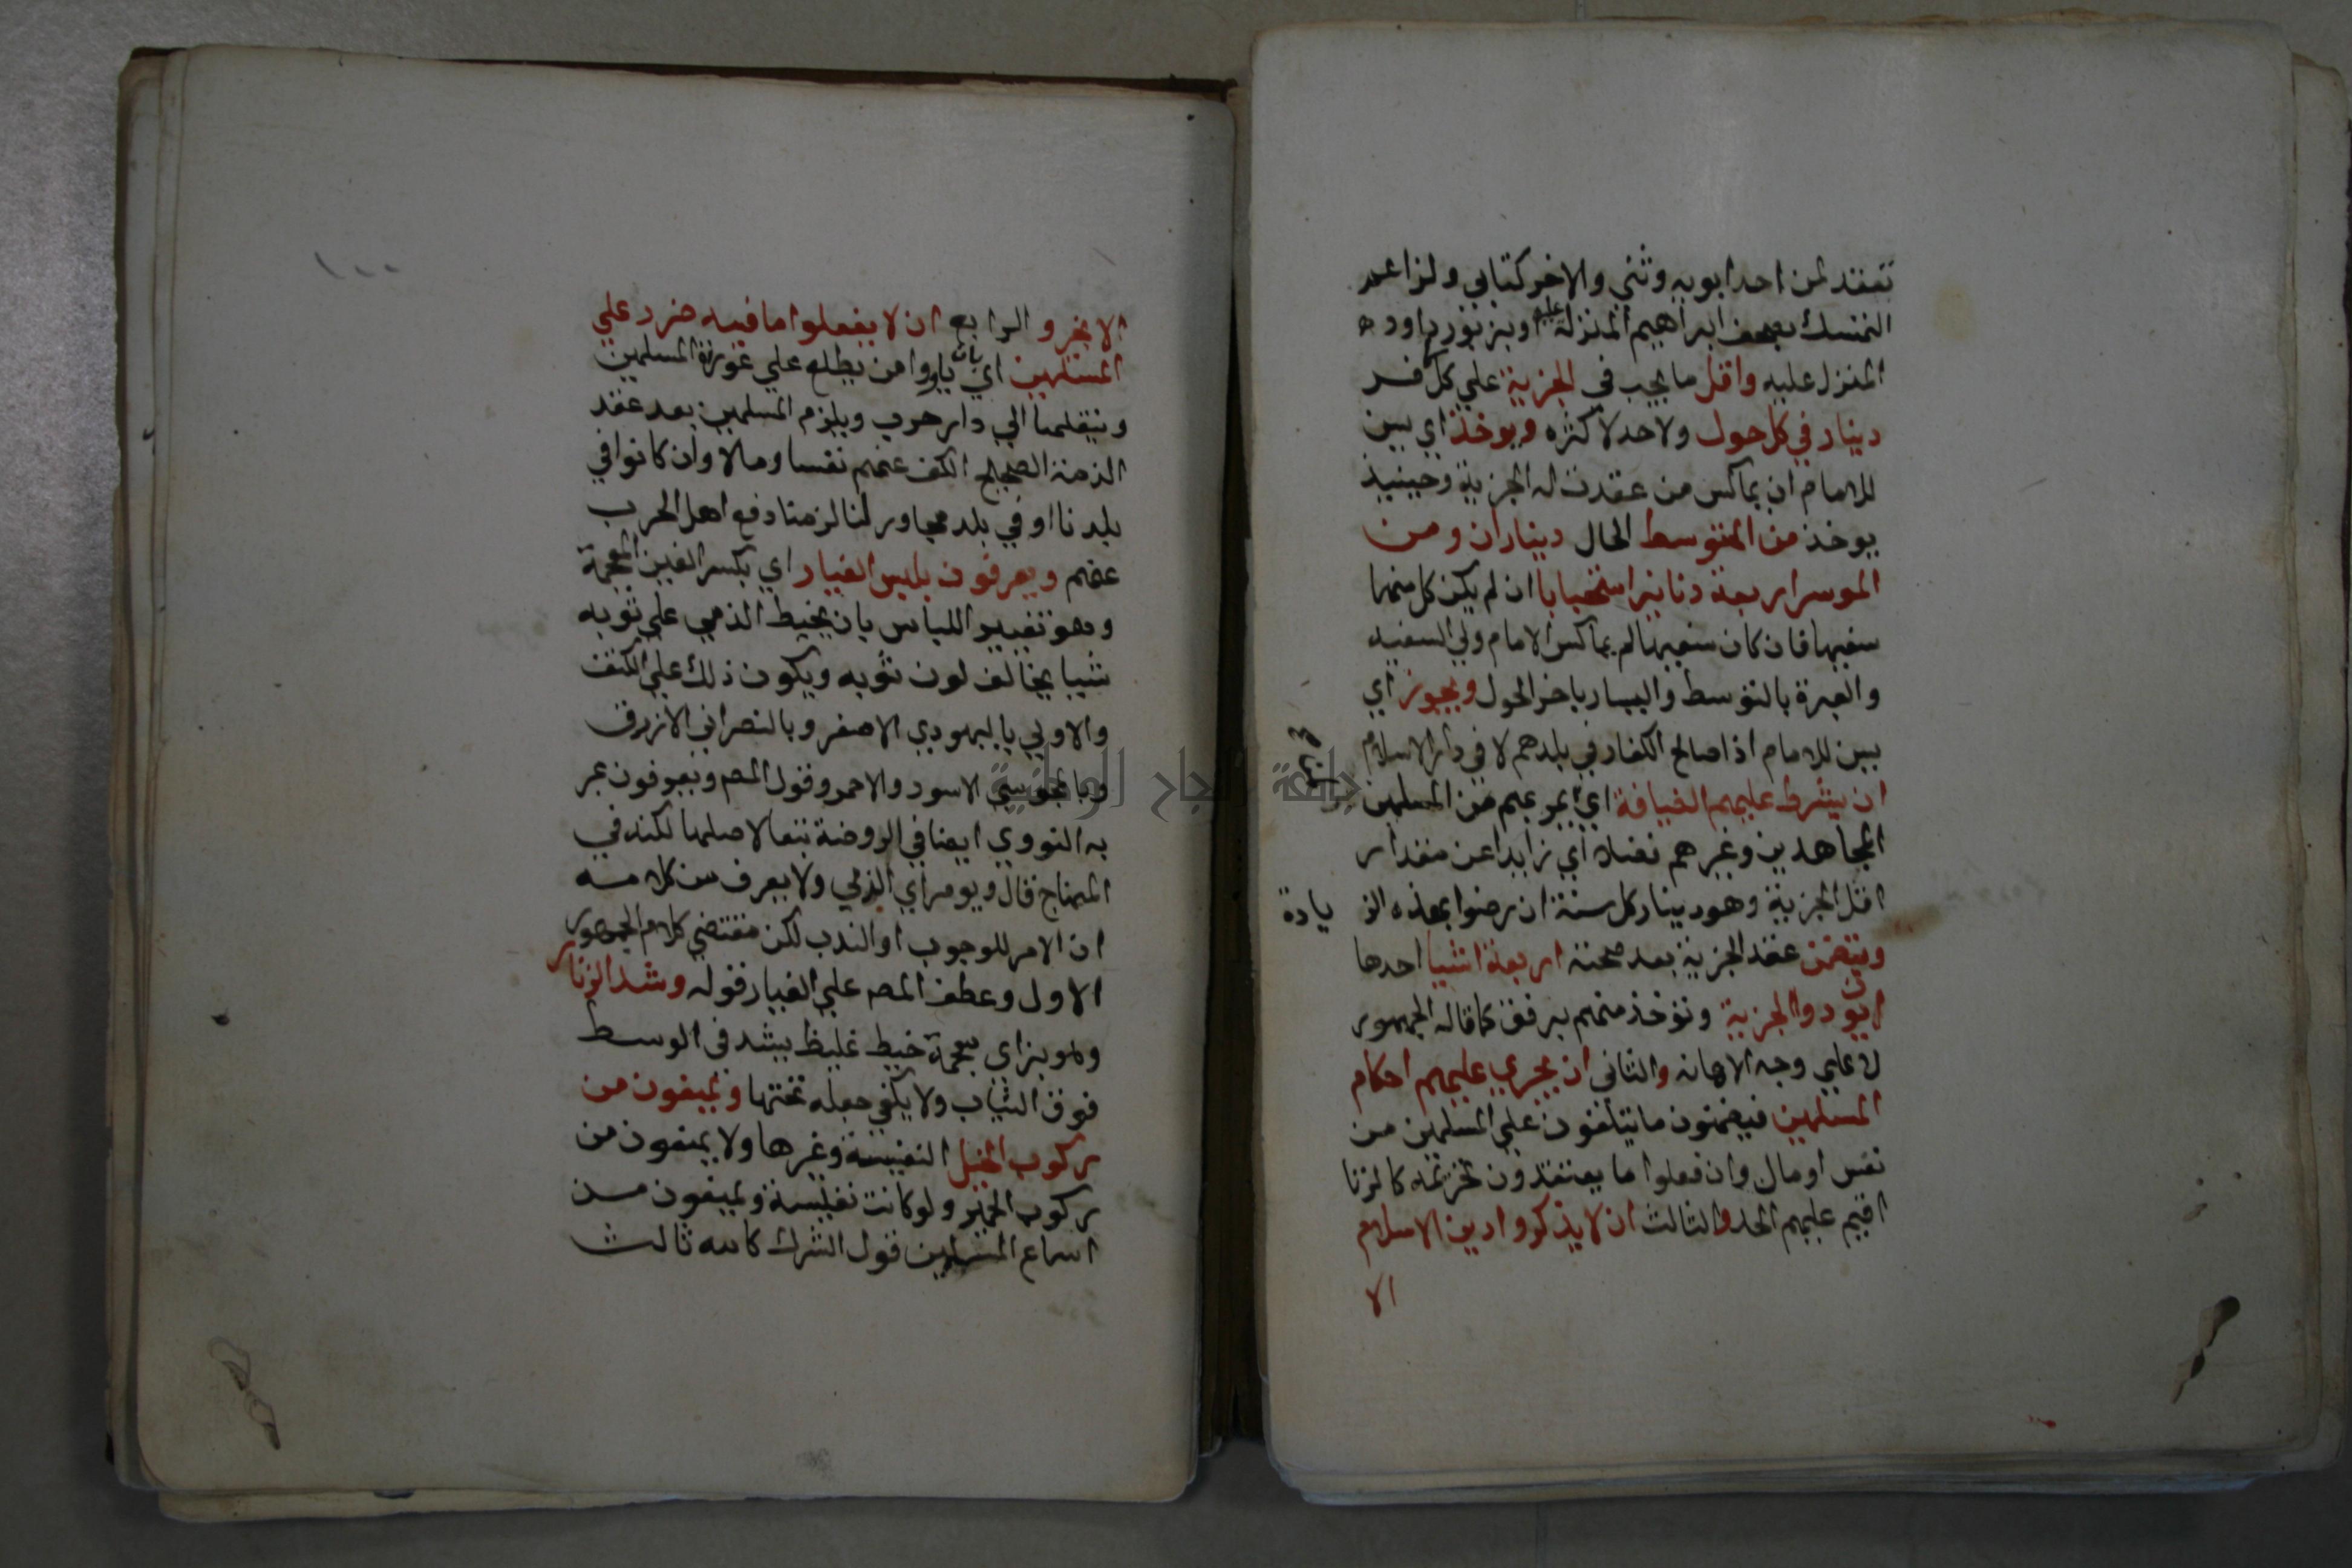 تعقد لمن احد ابويه وثني والاخر كتابي ولزاعم
التمسك بصحف ابراهيم المنزلة عليه او بزبور داود
المنزل عليه واقل ما يجب في الجزية علي كل كافر
دينار في كل حول ولا حد لاكثره ويوخذ اي يسن
للامام ان يماكس من عقدت له الجزية وحينيذ
يوخذ من المتوسط الحال ديناران ومن
الموسر اربعة دنانير استحبابا ان لم يكن كل منهما
سفيها فان كان سفيها لم يماكس الامام ولي السفيه
والعبرة بالتوسط واليسار باخر الحول ويجوز اي
يسن للامام اذا صالح الكفار في بلدهم لا في دار الاسلام
ان يشترط عليهم الضيافة اي لمن يمر بهم من المسلمين
المجاهدين وغيرهم فضلا اي زايدا عن مقدار
اقل الجزية وهو دينار كل سنة ان رضوا بهذه الزيادة
ويتضمن عقد الجزية بعد صحته اربعة اشيا احدها
ان يودوا الجزية وتؤخذ منهم برفق كما قاله الجمهور
لا علي وجه الاهانه والثاني ان يجري عليهم احكام
المسلمين فيضمنون ما يتلفون علي المسلمين من
نفس او مال وان فعلوا ما يعتقدون تحريمه كالزنا
اقيم عليهم الحد والثالث ان لا يذكروا دين الاسلام
الا
١٠٠
الا بخير والرابع ان لا يفعلوا ما فيه ضرر علي
المسلمين اي بان ياووا من يطلع علي عورة المسلمين
وينقلها الي دار حرب ويلزم المسلمين بعد عقد
الذمة الصحيح الكف عنهم نفسا ومالا وان كانوا في
بلدنا او في بلد مجاور لنا لزمنا دفع اهل الحرب
عنهم ويعرفون بلبس الغيار اي بكسر الغين المعجمة
وهو تغيير اللباس بان يخيط الذمي علي ثوبه
شيا يخالف لون ثوبه ويكون ذلك علي الكتف
والاولي باليهودي الاصفر وبالنصراني الازرق
وبالمجوسي الاسود والاحمر وقول المص ويعرفون عبر
به النووي ايضا في الروضة تبعا لاصلها لكنه في
المنهاج قال ويومر اي الذمي ولا يعرف من كلامه
ان الامر للوجوب او الندب لكن مقتضي كلام الجمهور
الاول وعطف المص علي الغيار قوله وشد الزنار
وهو بزاي معجمة خيط غليظ يشد في الوسط
فوق الثياب ولا يكفي جعله تحتها ويمنعون من
ركوب الخيل النفيسة وغيرها ولا يمنعون من
ركوب الحمير ولو كانت نفيسة ويمنعون من
اسماع المسلمين قول الشرك كالله ثالث
جامعة النجاح الوطنية